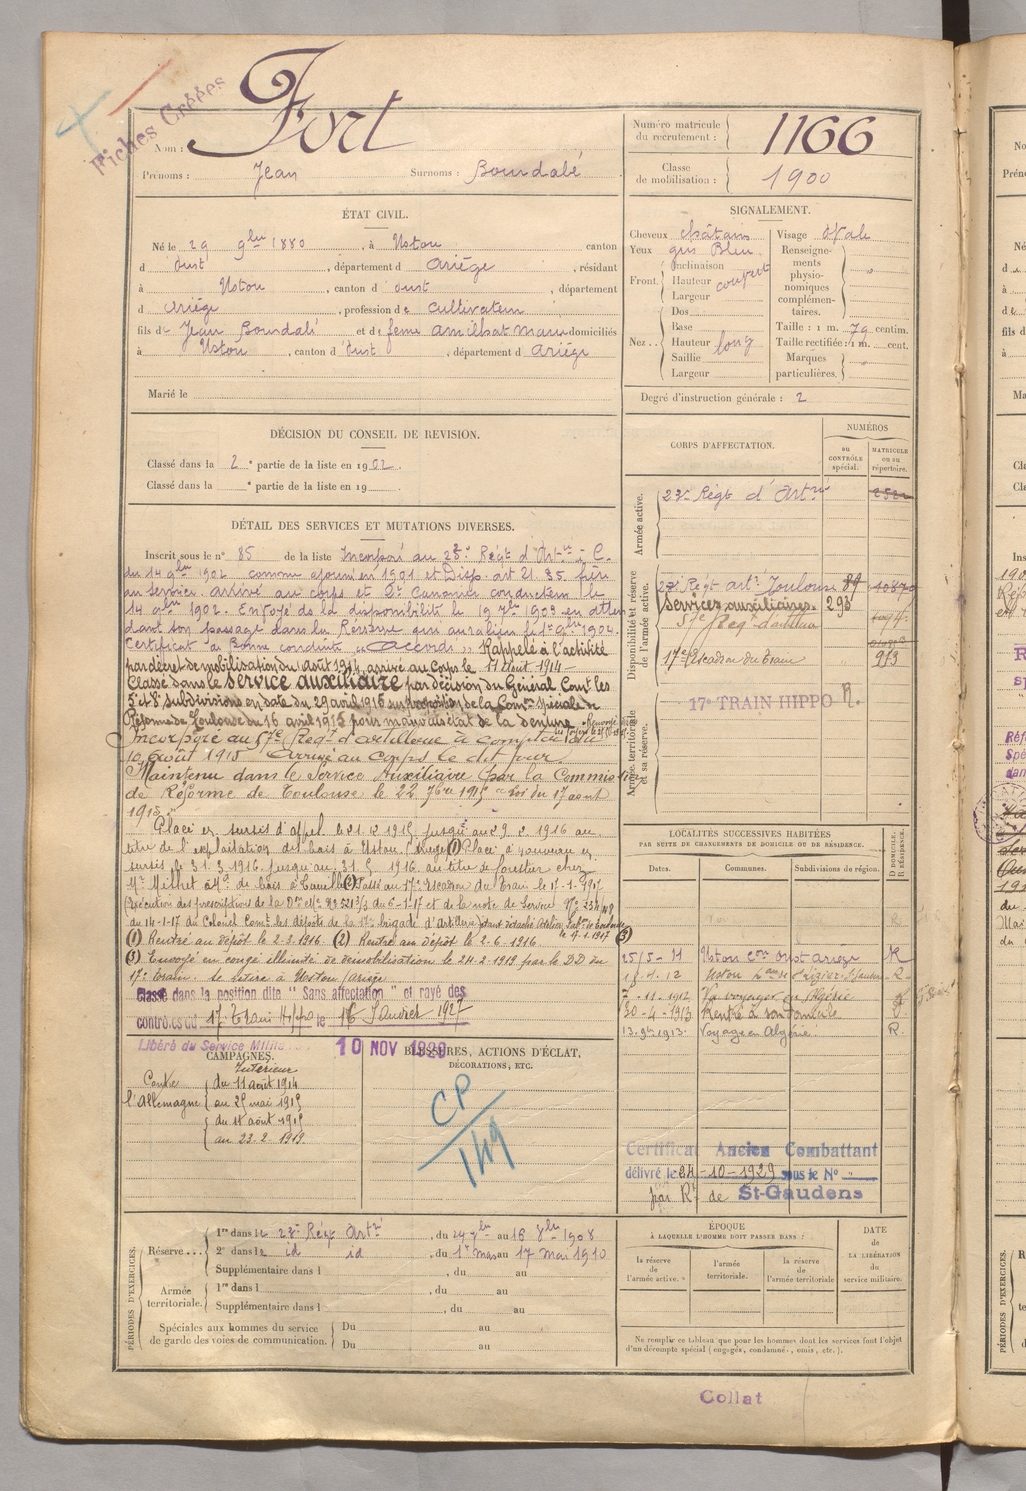 Fiches Créées
Nom : Fort
Prénoms : Jean Surnoms : Bourdalé
Numéro matricule du recrutement : 1166
Classe de mobilisation : 1900
ÉTAT CIVIL.
Né le 29 9bre 1880, à Ustou canton
d Oust, département d Ariège, résidant
à Ustou, canton d Oust, département
d Ariège, profession de cultivateur
fils de Jean Bourdalé et de feme Amilhat Marie domiciliés
à Ustou, canton d Oust, département d Ariège
Marié le
SIGNALEMENT.
Cheveux châtains Visage Ovale
Yeux gris Bleu.
Front. Inclinaison
Hauteur couvert
Largeur
Renseignements physionomiques complémentaires. "
Nez.. Dos
Base
Hauteur long
Saillie
Largeur
Taille : 1 m. 79 centim.
Taille rectifiée : 1 m. cent.
Marques particulières.
Degré d'instruction générale : 2
DÉCISION DU CONSEIL DE REVISION.
Classé dans la 2e partie de la liste en 1902.
Classé dans la e partie de la liste en 19
DÉTAIL DES SERVICES ET MUTATIONS DIVERSES.
Inscrit sous le n° 85 de la liste Incorporé au 23e Régt d'Artie à C.
du 14 9bre 1902 comme ajourné en 1901 et Disp. art 21. 35. frère
au service. arrivé au corps et 2e Canonnier conducteur le
14 9bre 1902. Envoyé ds la disponibilité le 19 7bre 1903 en atten
dant son passage dans la Réserve qui aura lieu le 1er 9bre 1904.
Certificat de Bonne conduite "Accordé" Rappelé à l'activité
par décret de mobilisation du août 1914, arrivé au Corps le 11 Août 1914 -
Classé dans le service auxiliaire par décision du Général Comt les
5e et 8e subdivisions en date du 29 avril 1915 sur proposition de la Comon spéciale de
Réforme de Toulouse du 16 avril 1915 pour mauvais état de la denture
Incorporé au 57e Régt d'artillerie à compter du
10 Août 1915 Arrivé au corps le dit jour
Maintenu dans le Service Auxiliaire par la Commission
de Réforme de Toulouse le 22 7bre 1915 Loi du 17 août
1915.
Placé en sursis d'appel le 21.12.1915 jusqu'au 29.2.1916 au
titre de l'exploitation des bois à Ustou. (Ariège) (1) Placé à nouveau en
sursis le 31.3.1916. jusqu'au 31.5.1916 au titre de forestier chez
Mr Milhet Md de bois à (2) Passé au 17e Escadron du Train le 17-1-1917
(Exécution des prescriptions de la Dm No 89521 3/3 du 6-1-17 et de la note de service No 234
du 14-1-17 du Colonel Comt les dépôts de la 17e brigade d'Artillerie)
(1) Rentré au dépôt le 2-3-1916. (2) Rentré au dépôt le 2-6-1916
(3) Envoyé en congé illimité de démobilisation le 24-2-1919 par le DD du
17e Train. Se retire à Ustou (Ariège)
Classé dans la position dite "Sans affectation" et rayé des
contrôles du 17e Train Hippo le 16 Janvier 1927
Libéré du Service Milit
10 NOV
CORPS D'AFFECTATION.
NUMÉROS
au CONTRÔLE spécial.
MATRICULE ou au répertoire.
Armée active.
23e Régt d'Artie 2522
Disponibilité et réserve de l'armée active.
23e Régt artie Toulouse 89 10870
Services auxiliaires. 293
57e Régt d'artillerie
17e Escadron du Train 913
Armée territoriale et sa réserve.
17e TRAIN HIPPO R.
LOCALITÉS SUCCESSIVES HABITÉES
PAR SUITE DE CHANGEMENTS DE DOMICILE OU DE RÉSIDENCE.
Dates. Communes. Subdivisions de région. D DOMICILE. R RÉSIDENCE.
25/5-11 Ustou con Oust Ariège R
-11-1912 Va voyager en Algérie
30-4-1913 Rentré à son domicile
13.9bre 1913. Voyage en Algérie R.
CAMPAGNES.
Intérieur
Contre l'Allemagne
du 11 août 1914
au 29 mai 1915
du 11 août 1915
au 23-2-1919
BLESSURES, ACTIONS D'ÉCLAT,
DÉCORATIONS, ETC.
CP
149
Certificat Ancien Combattant
délivré le 24-10-1929 sous le No
par Rt de St-Gaudens
PÉRIODES D'EXERCICES.
Réserve... 1re dans le 23e Régt Artie, du 24 7bre au 16 8bre 1908
2e dans le id id, du 1er mai au 17 mai 1910
Supplémentaire dans l , du au
Armée territoriale. 1re dans l , du au
Supplémentaire dans l , du au
Spéciales aux hommes du service de garde des voies de communication. Du au
Du au
ÉPOQUE
À LAQUELLE L'HOMME DOIT PASSER DANS :
la réserve de l'armée active.
l'armée territoriale.
la réserve de l'armée territoriale
DATE de LA LIBÉRATION du service militaire.
Ne remplir ce tableau que pour les hommes dont les services font l'objet
d'un décompte spécial (engagés, condamné, omis, etc.).
Collat